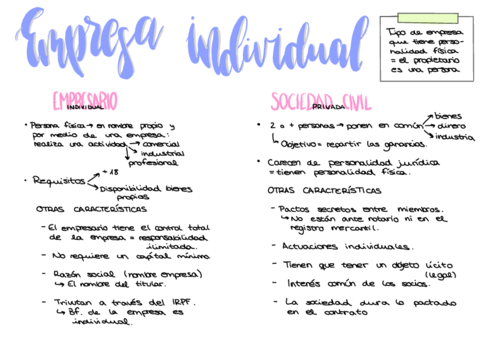 Empresa individual
Tipo de empresa
que tiene perso-
nalidad física
= el propietario
es una persona
EMPRESARIO
INDIVIDUAL
• Persona física → en nombre propio y
por medio de una empresa:
realiza una actividad → comercial
→ industrial
→ profesional
• Requisitos → + 18
→ Disponibilidad bienes
propios
OTRAS CARACTERÍSTICAS
- El empresario tiene el control total
de la empresa = responsabilidad
ilimitada.
- No requiere un capital mínimo
- Razón social (nombre empresa)
↳ El nombre del titular.
- Trivutan a través del IRPF.
↳ Bf. de la empresa es
individual.
SOCIEDAD CIVIL
PRIVADA
• 2 o + personas → ponen en común → bienes
→ dinero
→ industria
↳ Objetivo = repartir las ganancias.
• Carecen de personalidad jurídica
= tienen personalidad física.
OTRAS CARACTERÍSTICAS
- Pactos secretos entre miembros.
↳ No están ante notario ni en el
registro mercantil.
- Actuaciones individuales.
- Tienen que tener un objeto lícito
(legal)
- Interés común de los socios.
- La sociedad dura lo pactado
en el contrato